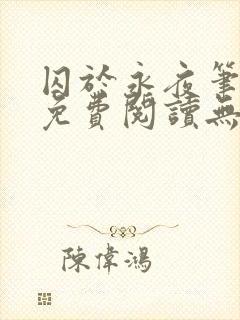 囚於永夜筆
免費閱讀無
陳偉鴻